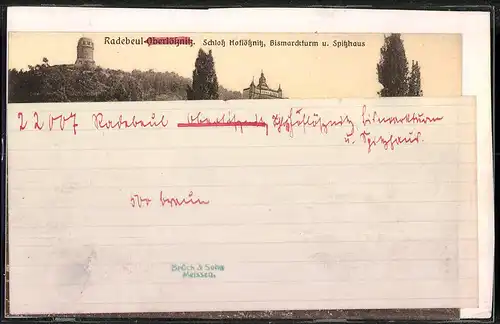 Radebeul-Oberlößnitz. Schloß Hoflößnitz, Bismarckturm u. Spitzhaus
22007 Radebeul Oberlößnitz Schloß Hoflößnitz Bismarckturm
u. Spitzhaus.
500 braun
Brück & Sohn
Meissen.